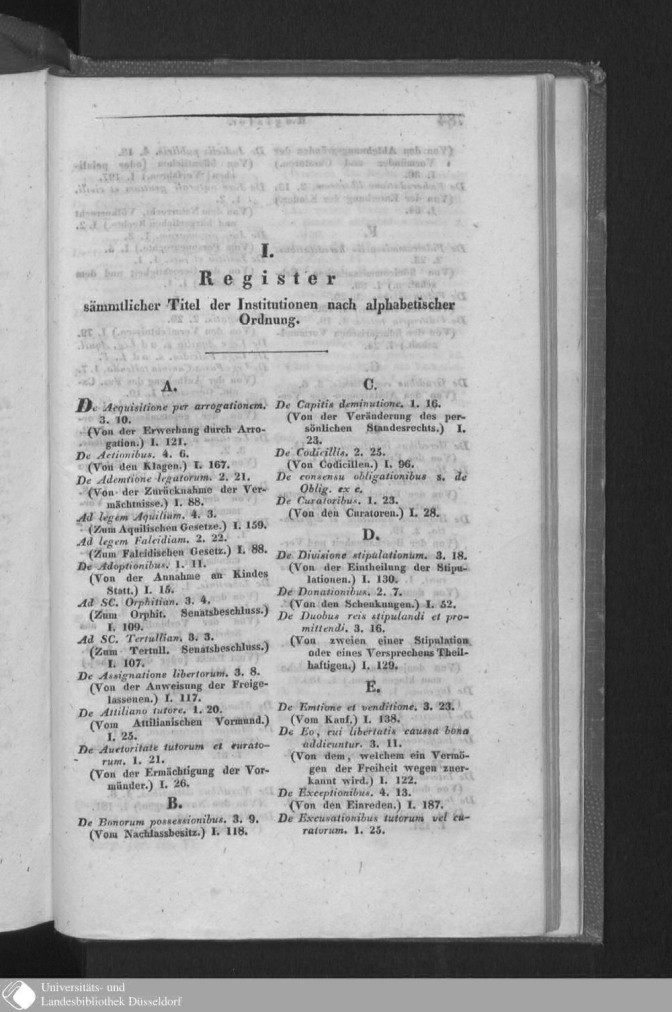 I.
Register
sämmtlicher Titel der Institutionen nach alphabetischer
Ordnung.
A.
De Acquisitione per arrogationem.
3. 10.
(Von der Erwerbung durch Arro-
gation.) I. 121.
De Actionibus. 4. 6.
(Von den Klagen.) I. 167.
De Ademtione legatorum. 2. 21.
(Von der Zurücknahme der Ver-
mächtnisse.) I. 88.
Ad legem Aquiliam. 4. 3.
(Zum Aquilischen Gesetze.) I. 159.
Ad legem Falcidiam. 2. 22.
(Zum Falcidischen Gesetz.) I. 88.
De Adoptionibus. 1. 11.
(Von der Annahme an Kindes
Statt.) I. 15.
Ad SC. Orphitian. 3. 4.
(Zum Orphit. Senatsbeschluss.)
I. 109.
Ad SC. Tertullian. 3. 3.
(Zum Tertull. Senatsbeschluss.)
I. 107.
De Assignatione libertorum. 3. 8.
(Von der Anweisung der Freige-
lassenen.) I. 117.
De Attiliano tutore. 1. 20.
(Vom Attilianischen Vormund.)
I. 25.
De Auctoritate tutorum et curato-
rum. 1. 21.
(Von der Ermächtigung der Vor-
münder.) I. 26.
B.
De Bonorum possessionibus. 3. 9.
(Vom Nachlassbesitz.) I. 118.
C.
De Capitis deminutione. 1. 16.
(Von der Veränderung des per-
sönlichen Standesrechts.) I.
23.
De Codicillis. 2. 25.
(Von Codicillen.) I. 96.
De consensu obligationibus s. de
Oblig. ex c.
De Curatoribus. 1. 23.
(Von den Curatoren.) I. 28.
D.
De Divisione stipulationum. 3. 18.
(Von der Eintheilung der Stipu-
lationen.) I. 130.
De Donationibus. 2. 7.
(Von den Schenkungen.) I. 52.
De Duobus reis stipulandi et pro-
mittendi. 3. 16.
(Von zweien einer Stipulation
oder eines Versprechens Theil-
haftigen.) I. 129.
E.
De Emtione et venditione. 3. 23.
(Vom Kauf.) I. 138.
De Eo, cui libertatis caussa bona
addicuntur. 3. 11.
(Von dem, welchem ein Vermö-
gen der Freiheit wegen zuer-
kannt wird.) I. 122.
De Exceptionibus. 4. 13.
(Von den Einreden.) I. 187.
De Excusationibus tutorum vel cu-
ratorum. 1. 25.
Universitäts- und
Landesbibliothek Düsseldorf